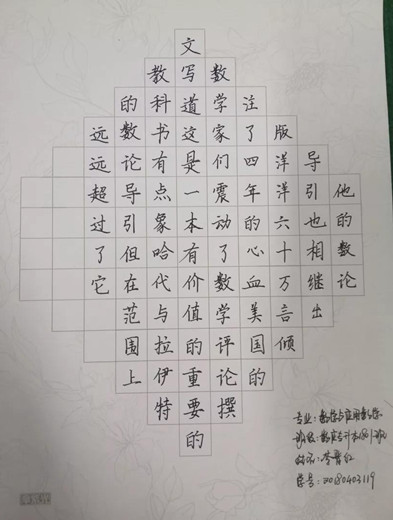 他的数论
导引也相继出
版洋洋六十万言倾
注了四年的心血美国的
数学家们震动了数学评论撰
文写道这是一本有价值的重要的
教科书有点象哈代与拉伊特
的数论导引但在范围上
远远超过了它
专业：数学与应用数学
班级：数应专升本1801班
姓名：李
学号：20180403119